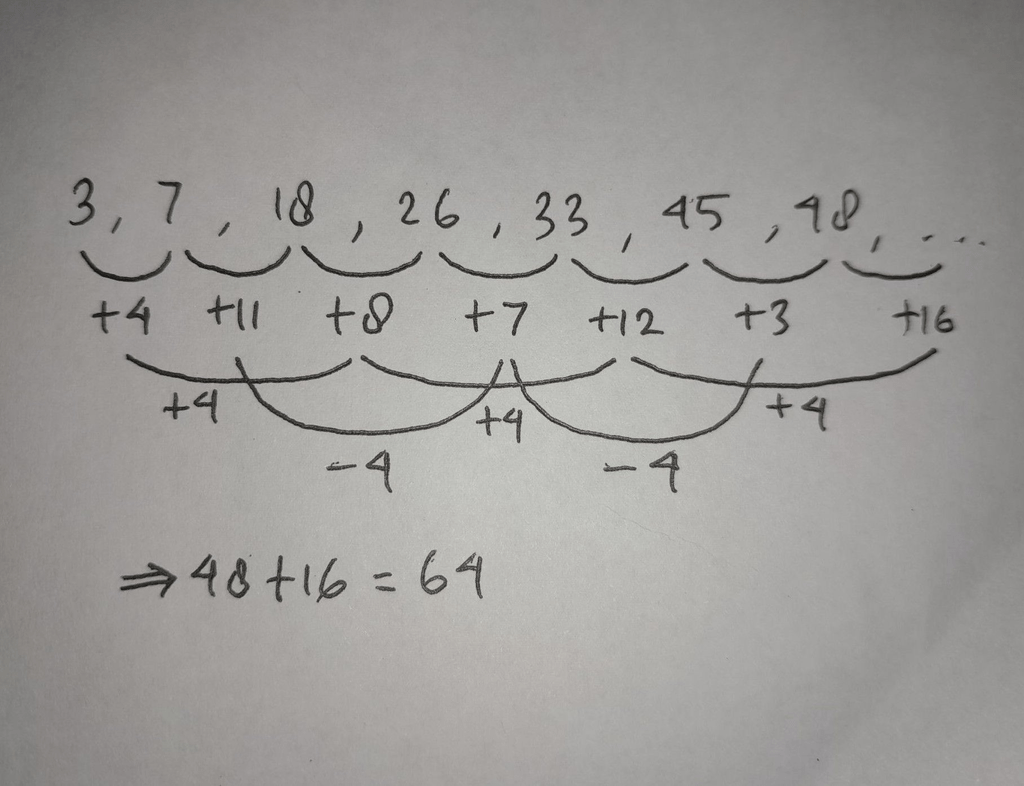 3, 7, 18, 26, 33, 45, 48, ...
+4 +11 +8 +7 +12 +3 +16
+4 +4 +4
-4 -4
⇒ 48 + 16 = 64